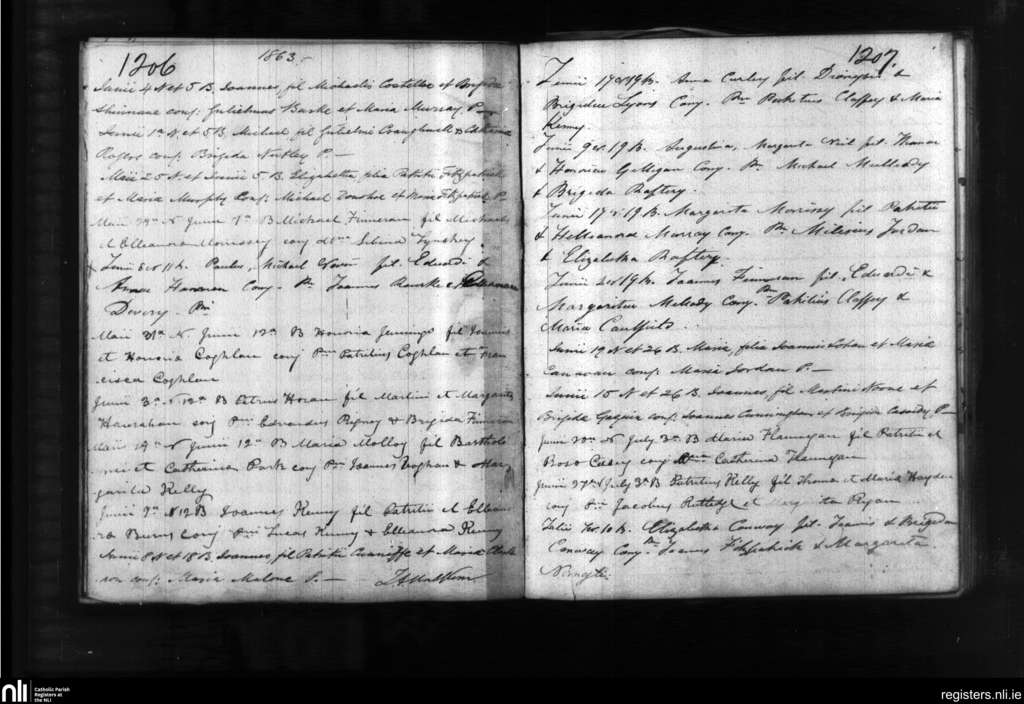 1206
1863
Junii 4 N et 5 B. Joannes, fil Michaelis Costelloe et Brigida
Shinnane conj: Gulielmus Burke et Maria Murray P—
Junii 1º N. et 5 B Michael fil Gulielmi Coughnack & Catherina
Rogers conj: Brigida Nutley P.—
Maii 25 N et Junii 5 B. Elizabetha filia Patritii Fitzpatrick
et Maria Murphy Conj: Michael Donohoe et Fitzpatrick P.
Maii 28ª N Junii 7ª B Michael Finneran fil Michaelis
et Elleanora Morrissey conj Selina Lynskey.
Junii 8 et 11 b. Paulus, Michael Nevin fil. Edwardi &
Hanara Conj. Pn Joannes Rourke & Elleanora
Devery. Pn
Maii 31ª N Junii 12ª B Honoria Jennings fil Joannis
et Honoria Coghlan conj Pnn Patritius Coghlan et Fran
cisca Coghlan
Junii 3ª N 12ª B Petrus Horan fil Martini et Margarita
Hanrahan conj Pnn Edwardus Pigney & Brigida Finneran
Maii 19ª N Junii 12ª B Maria Molloy fil Bartholo
mei et Catherina Park conj Pnn Joannes Vaghan & Mar
garita Kelly
Junii 7ª N 12 B Joannes Kenny fil Patritii et Elleano
ra Burns conj Pnn Lucas Kenny & Elleanora Kenny
Junii 8 N et 18 B. Joannes, fil Patritii Cunniffe et Maria Clark
son conj: Maria Malone P.—
1207.
Junii 17 et 19 b. Anna Curley fil Dionysii &
Brigidae Lyons Conj. Pnn Patritius Claffey & Maria
Kenny.
Junii 9 et 19 b. Augustina, Margarita Neil fil. Thomae
& Honoriae Gilligan Conj. Pn. Michael Mulleady
& Brigida Raftery.
Junii 17 et 19 B. Margarita Morrisey fil Patritii
& Helleanorae Murray Conj. Pn Milesius Jordan
& Elizabetha Raftery.
Junii 2 et 19 b. Joannes Finneran fil. Edwardi &
Margaritae Mellody Conj. Pnn Patritius Claffey &
Maria Caulfield
Junii 19 N et 26 B. Maria, filia Joannis Lohan et Maria
Canavan conj: Maria Jordan P.—
Junii 15 N et 26 B. Joannes, fil Martini Nerone et
Brigida conj: Joannes Cunningham et Brigida Cassidy P—
Junii 30ª N July 3ª B Maria Flannagan fil Patritii et
Rosa Casey conj Catherina Flannagan
Junii 27ª N July 3ª B Patritius Kelly fil Thoma et Maria Hayden
conj Pnn Jacobus Rutledge et Margarita Ryan
Julii 7 et 10 b. Elizabetha Conway fil. Joannis & Brigidae
Conway Conj. Pn Joannes Fitzpatrick & Margarita
nli
Catholic Parish
Registers at
the NLI
registers.nli.ie